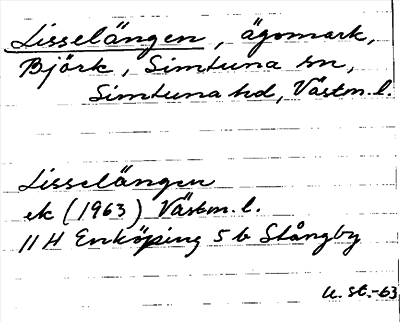 Lisselängen, ägomark,
Björk, Simtuna sn,
Simtuna hd, Västm. l.
Lisselängen
ek (1963) Västm. l.
11 H Enköping 5 b Stångby
U. St. -63